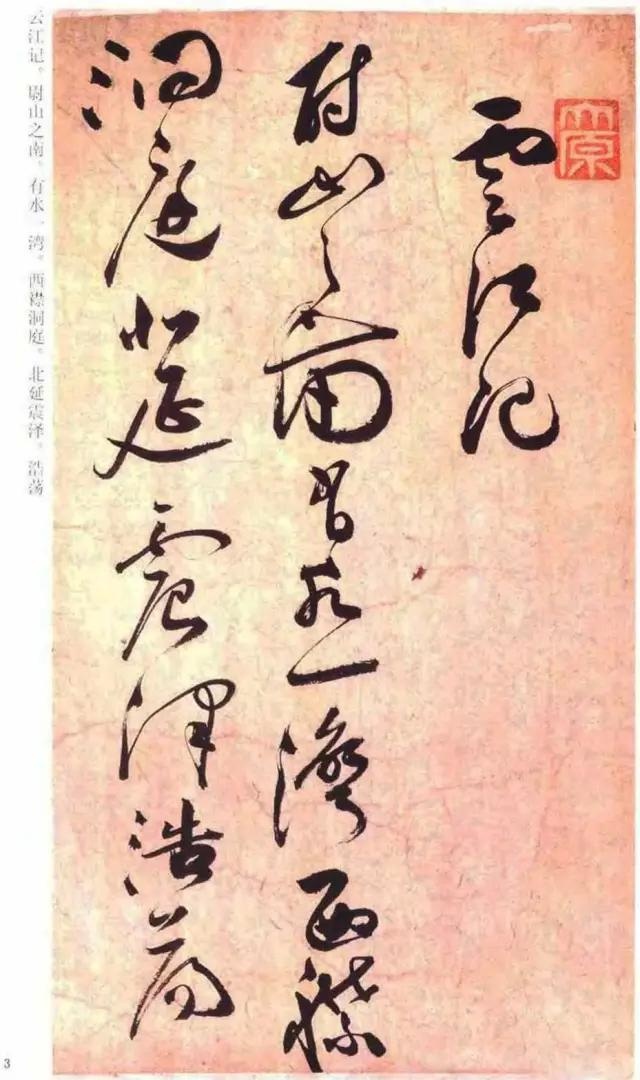 雲江记
尉山之南有水一灣西襟
洞庭北延震澤浩荡
云江记。尉山之南。有水一湾。西襟洞庭。北延震泽。浩荡
3